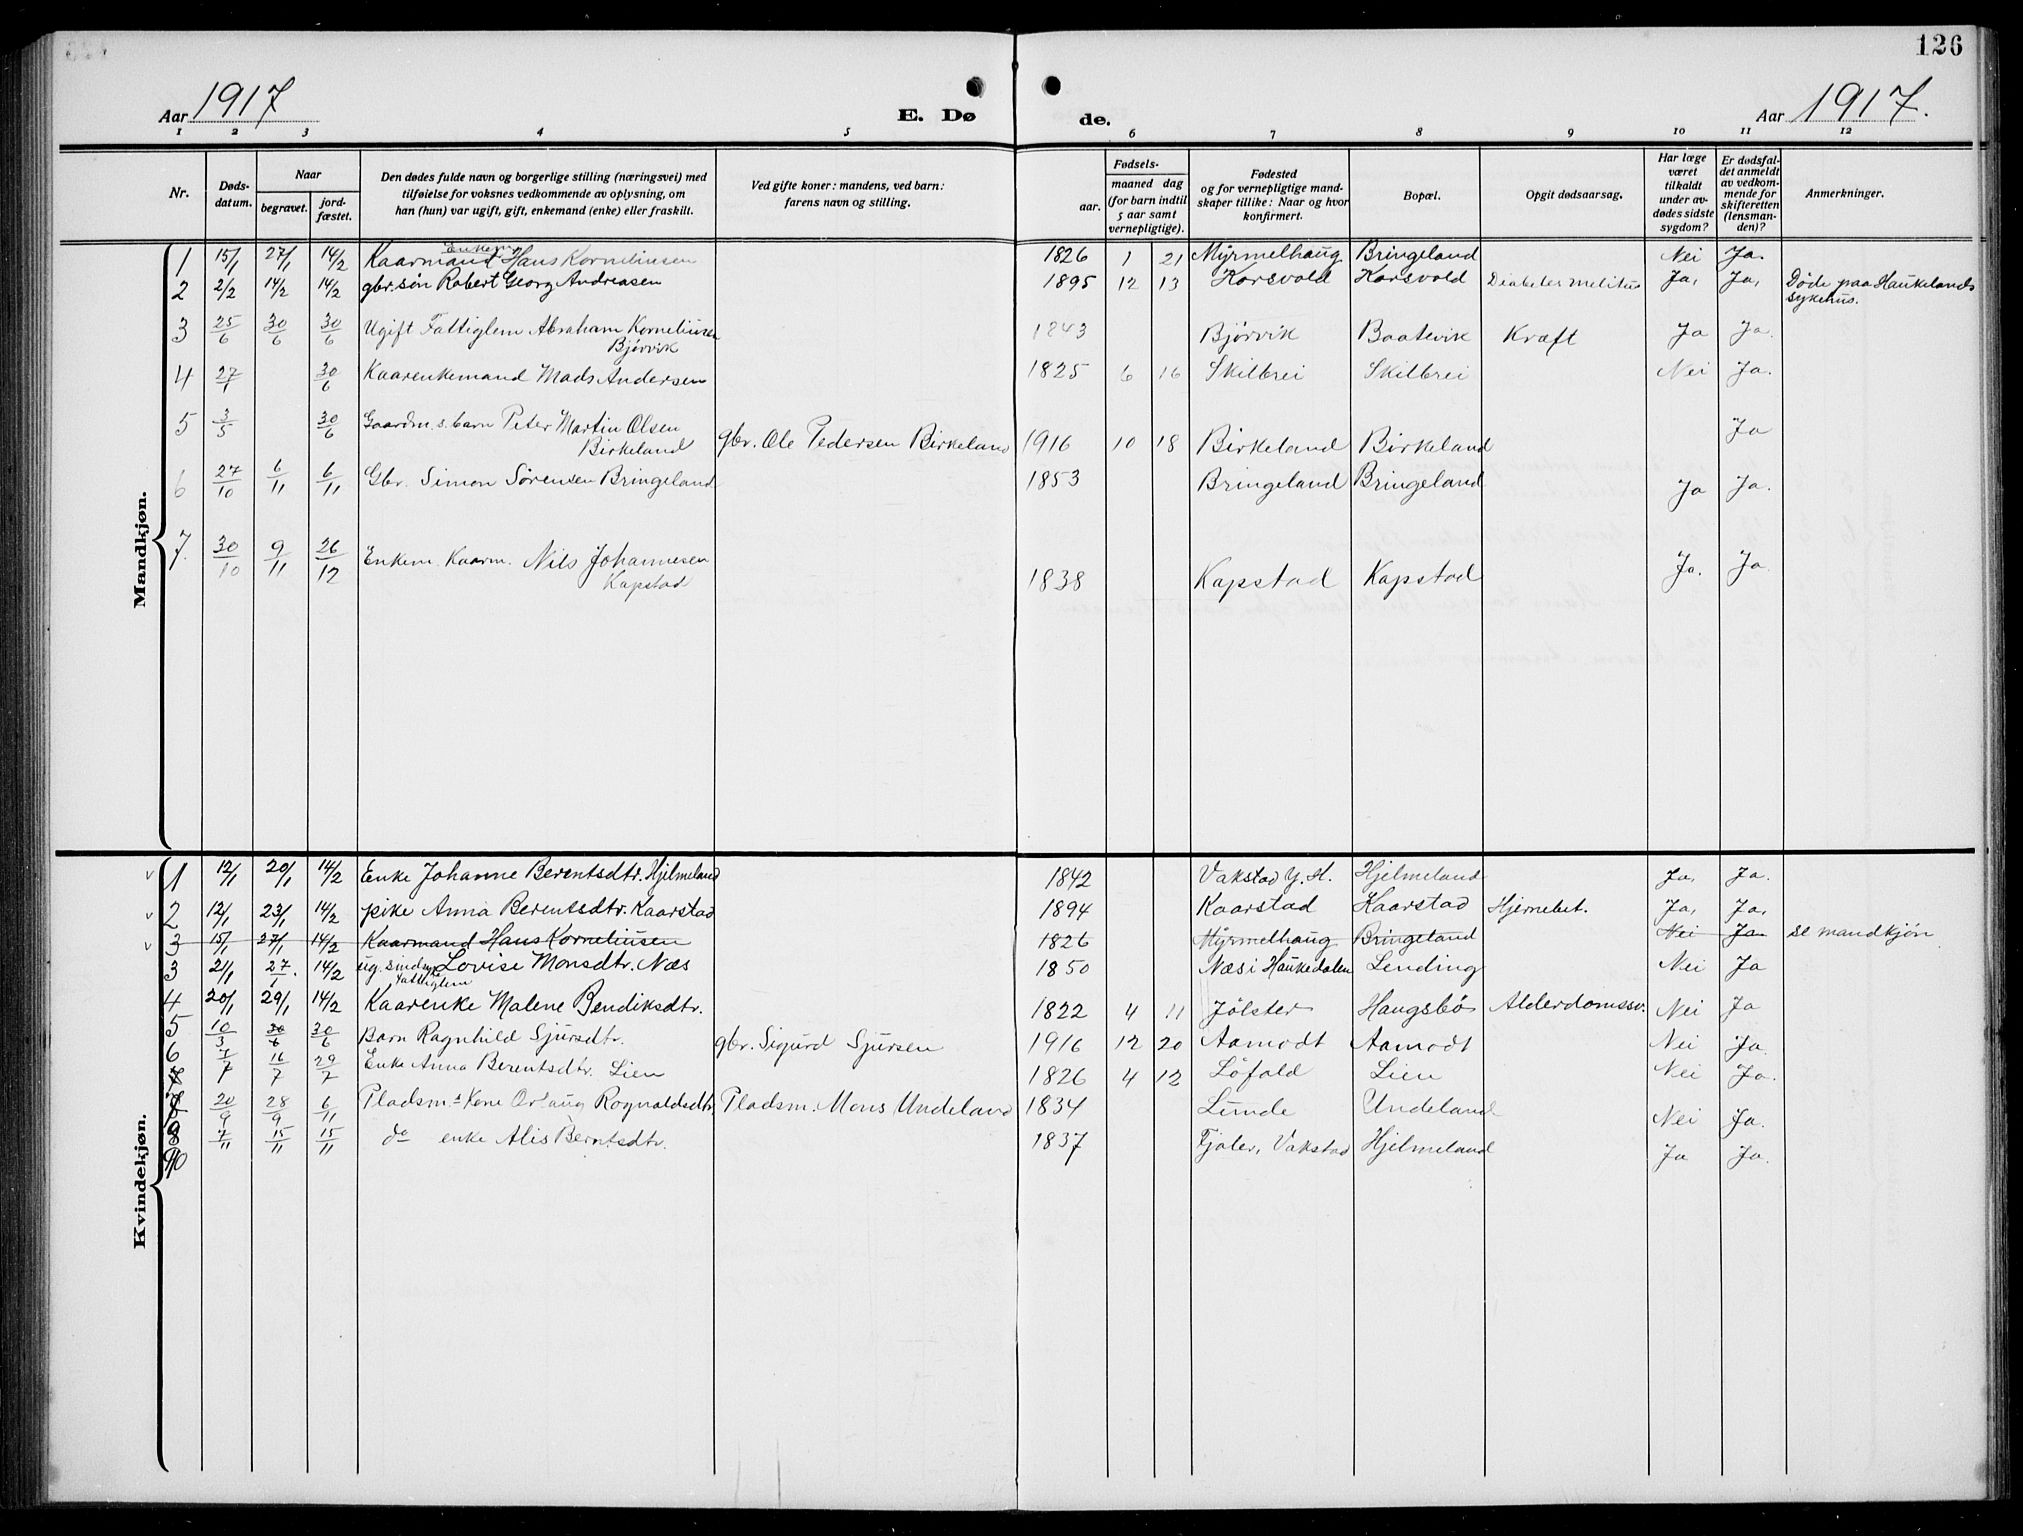 126
Aar 1917 E. Døde. Aar 1917.
1 2 3 4 5 6 7 8 9 10 11 12
Nr. Døds-datum. Naar begravet. jord-fæstet. Den dødes fulde navn og borgerlige stilling (næringsvei) med tilføielse for voksnes vedkommende av oplysning, om han (hun) var ugift, gift, enkemand (enke) eller fraskilt. Ved gifte koner: mandens, ved barn: farens navn og stilling. Fødsels- aar. maaned dag (for barn indtil 5 aar samt vernepligtige). Fødested og for vernepligtige mandskaper tillike: Naar og hvor konfirmert. Bopæl. Opgit dødsaarsag. Har læge været tilkaldt under avdødes sidste sygdom? Er dødsfaldet anmeldt av vedkommende for skifteretten (lensmanden)? Anmerkninger.
Mandkjøn.
1 15/1 27/1 14/2 Kaarmand Enkem. Hans Korneliusen 1826 1 21 Myrmelhaug Bringeland Nei Ja.
2 2/2 14/2 14/2 gbr. søn Robert Georg Andreasen 1895 12 13 Korsvold Korsvold Diabetes melitus Ja, Ja, Døde paa Haukelands sykehus.
3 25/6 30/6 30/6 Ugift Fattiglem Abraham Korneliusen Bjørvik 1843 Bjørvik Baatevik Kræft Ja Ja.
4 27/1 30/6 Kaarenkemand Mads Andersen 1825 6 16 Skilbrei Skilbrei Nei Ja.
5 3/5 30/6 Gaardm.s. barn Peter Martin Olsen Birkeland gbr. Ole Pedersen Birkeland 1916 10 18 Birkeland Birkeland Ja
6 27/10 6/11 6/11 Gbr. Simon Sørensen Bringeland 1853 Bringeland Bringeland Ja Ja.
7. 30/10 9/11 26/12 Enkem. Kaarm. Nils Johannesen Kapstad 1838 Kapstad Kapstad Ja. Ja.
Kvindekjøn.
v 1 12/1 20/1 14/2 Enke Johanne Berentsdtr. Hjelmeland 1842 Vakstad Y. H. Hjelmeland Ja, Ja.
v 2 12/1 23/1 14/2 pike Anna Berentsdtr. Kaarstad 1894 Kaarstad Kaarstad Hjernebet. Ja, Ja,
v 3 15/1 27/1 14/2 Kaarmand Hans Korneliusen 1826 Myrmelhaug Bringeland Nei Ja se mandkjøn
3 21/1 27/1. 14/2 ug. sindsyk Fattiglem Lovise Monsdtr. Næs 1850 Næs i Haukedalen Lending Nei Ja
4 20/1 29/1 14/2 Kaarenke Malene Bendiksdtr. 1822 4 11 Jölster Haugsbö Alderdomssv. Nei Ja
5 10/3 30/6 30/6 Barn Ragnhild Sjursdtr. gbr. Sigurd Sjursen 1916 12 20 Aamodt Aamodt Nei Ja.
6 7/7 16/7 29/7 Enke Anna Berentsdtr. Lien 1826 4 12 Löfald Lien Nei Ja.
20/9 28/9 6/11 Pladsm.s Kone Orlaug Rognaldsdtr. Pladsm. Mons Undeland 1834 Lunde Undeland Nei Ja.
7/11 15/11 15/11 do enke Alis Berntsdtr. 1837 Fjaler, Vakstad Hjelmeland Ja Ja.